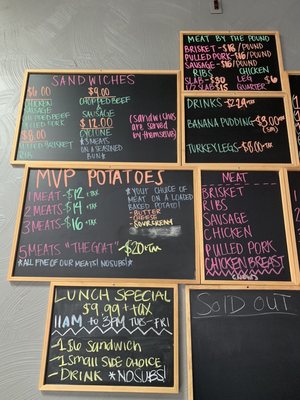 MEAT BY THE POUND
BRISKET - $18/POUND
PULLED PORK - $16/POUND
SAUSAGE - $16/POUND
RIBS
SLAB - $30
1/2 SLAB $15
CHICKEN
LEG $6
QUARTER
SANDWICHES
$6.00
CHICKEN
SAUSAGE
CHOPPED BEEF
PULLED PORK
$8.00
SLICED BRISKET
$9.00
CHOPPED BEEF
&
SAUSAGE
$12.00
CYCLONE
*3 MEATS
ON A SEASONED
BUN*
(Sandwiches
are served
by themselves)
DRINKS -
BANANA PUDDING - $3.00
(5oz)
TURKEY LEGS - $8.00+TAX
MVP POTATOES
1 MEAT - $12 + TAX
2 MEATS - $14 + TAX
3 MEATS - $16 + TAX
*YOUR CHOICE OF
MEAT ON A LOADED
BAKED POTATO!
- BUTTER
- CHEESE
- SOUR CREAM
5 MEATS "THE GOAT" - $20+TAX
*ALL FIVE OF OUR MEATS! NO SUBS!*
MEAT
BRISKET
RIBS
SAUSAGE
CHICKEN
PULLED PORK
CHICKEN BREAST
LUNCH SPECIAL
$9.99 + TAX
11AM to 3PM TUES - FRI
- 1 $6 SANDWICH
- 1 SMALL SIDE CHOICE
- DRINK *NO SUBS!
SOLD OUT